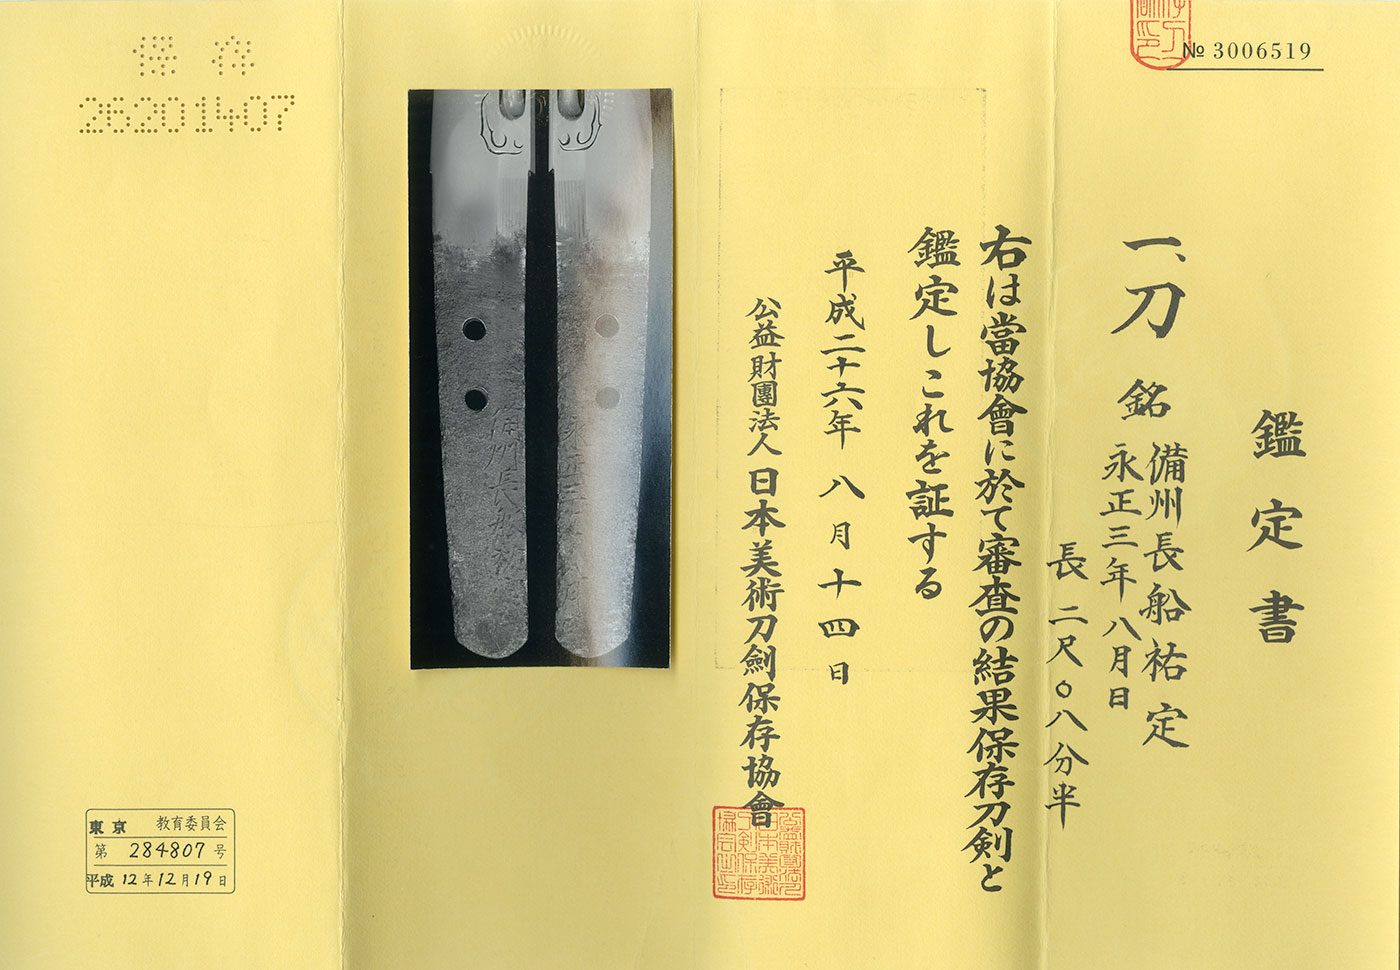 № 3006519
鑑定書
一、刀 銘 備州長船祐定
永正三年八月日
長 二尺〇八分半
右は當協會に於て審査の結果保存刀剣と
鑑定しこれを証する
平成二十六年 八月十四日
公益財團法人 日本美術刀劍保存協會
備州長船祐
永正三年
保存
26201407
東京 教育委員会
第 284807 号
平成 12年12月19日